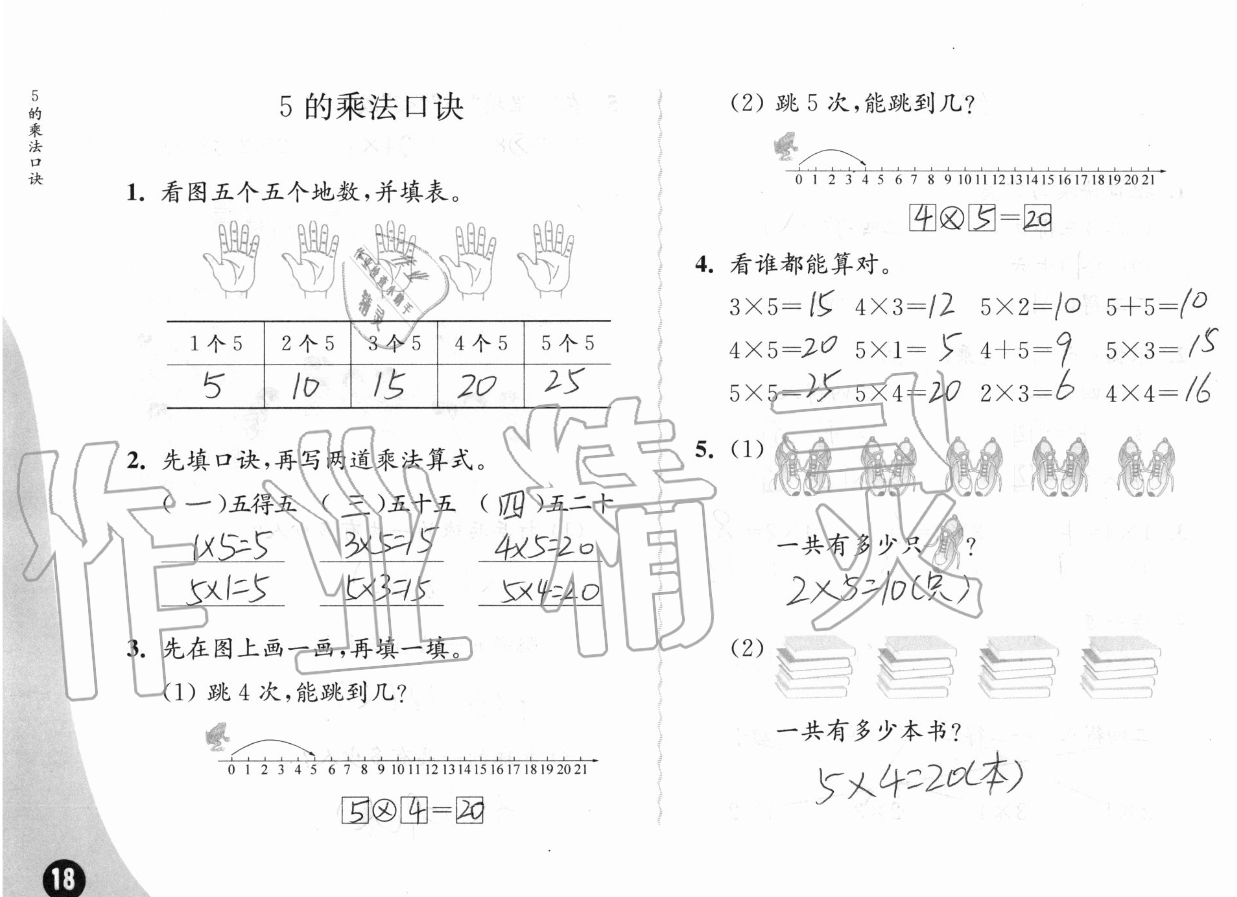 5的乘法口诀
5 的乘法口诀
1. 看图五个五个地数,并填表。
作业
作业检查小帮手
精灵
1个5 2个5 3个5 4个5 5个5
5 10 15 20 25
2. 先填口诀,再写两道乘法算式。
(一)五得五 (三)五十五 (四)五二十
1×5=5 3×5=15 4×5=20
5×1=5 5×3=15 5×4=20
3. 先在图上画一画,再填一填。
(1) 跳 4 次,能跳到几?
0 1 2 3 4 5 6 7 8 9 10 11 12 13 14 15 16 17 18 19 20 21
5×4=20
18
(2) 跳 5 次,能跳到几?
0 1 2 3 4 5 6 7 8 9 10 11 12 13 14 15 16 17 18 19 20 21
4×5=20
4. 看谁都能算对。
3×5=15 4×3=12 5×2=10 5+5=10
4×5=20 5×1=5 4+5=9 5×3=15
5×5=25 5×4=20 2×3=6 4×4=16
5. (1)
一共有多少只 ?
2×5=10(只)
(2)
一共有多少本书?
5×4=20(本)
作业精灵